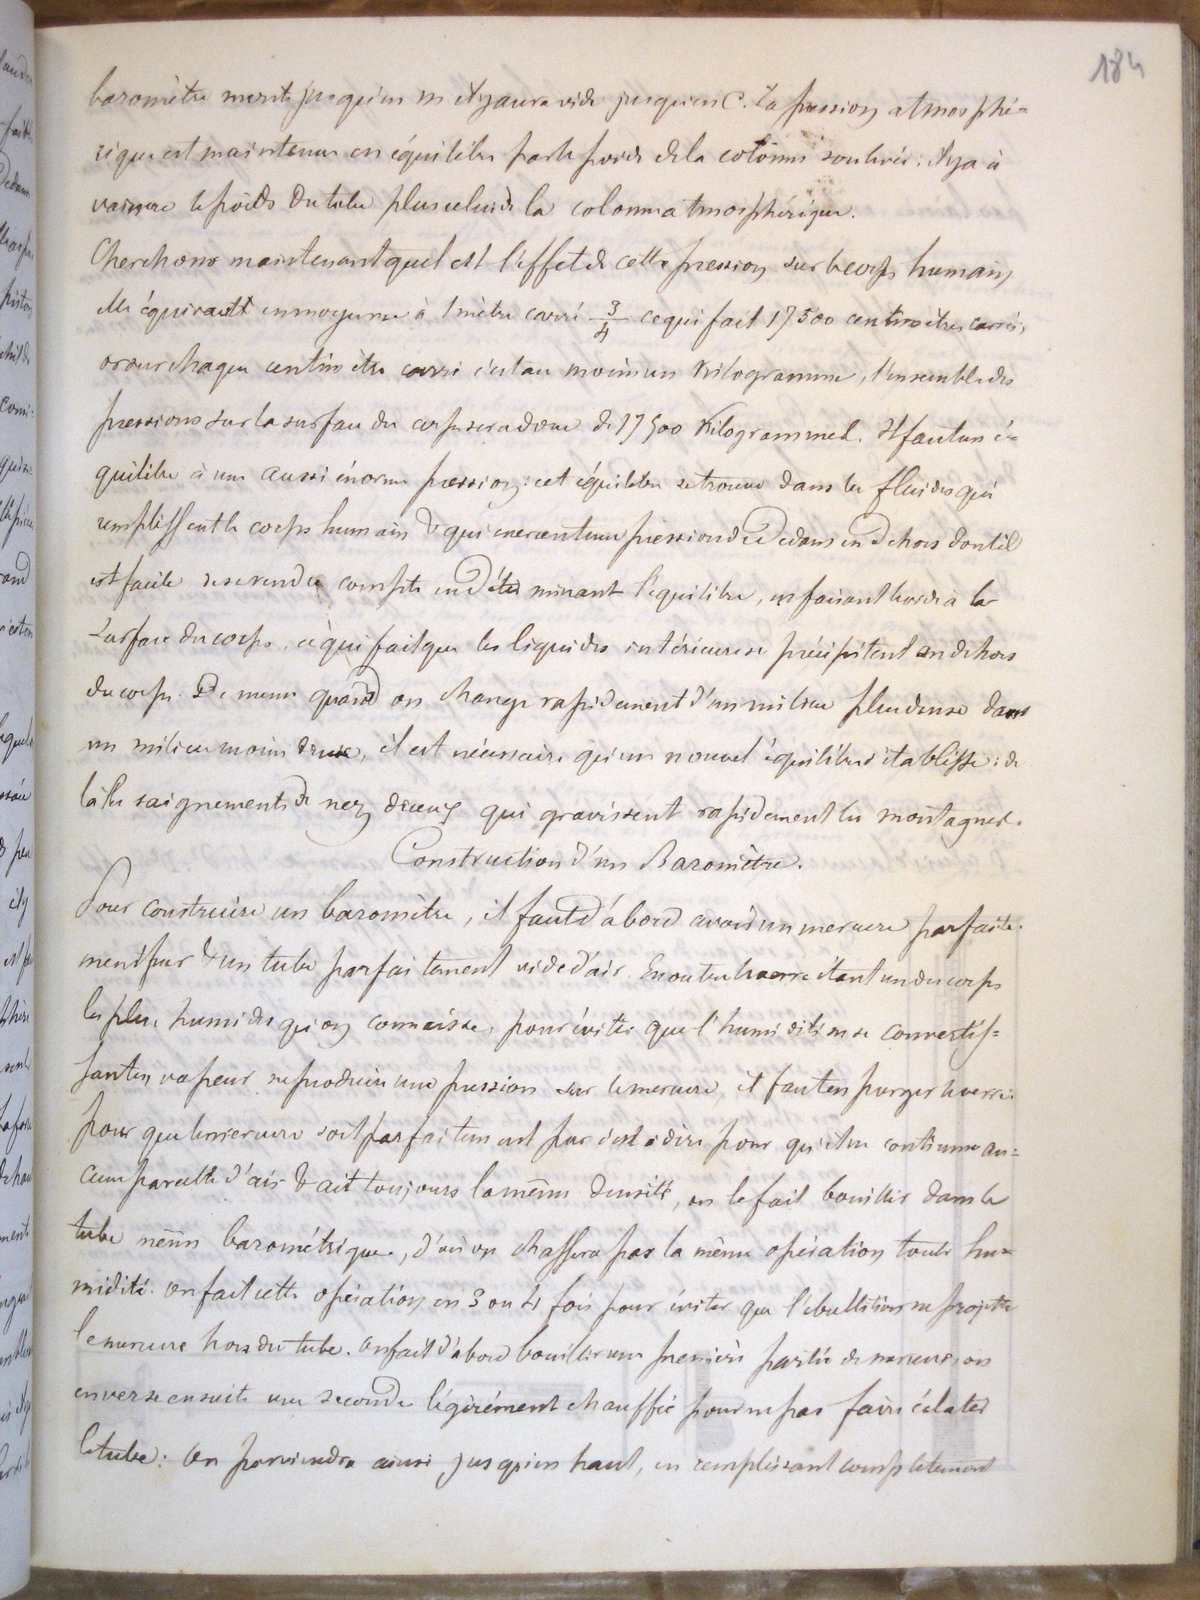 184
baromètre monte jusqu'en m il y aura vide jusqu'en C. La pression atmosphé=
rique est maintenue en équilibre par le poids de la colonne soulevée: il y a à
vaincre le poids du tube plus celui de la colonne atmosphérique.
Cherchons maintenant quel est l'effet de cette pression sur le corps humain,
elle équivaut en moyenne à 1 mètre carré 3/4 ce qui fait 17500 centimètres carrés,
or sur chaque centimètre carré c'est au moins un Kilogramme, l'ensemble des
pressions sur la surface du corps sera donc de 17500 Kilogrammes. Il faut un é=
quilibre à une aussi énorme pression: cet équilibre se trouve dans les fluides qui
remplissent le corps humain & qui exercent une pression de dedans en dehors dont il
est facile de se rendre compte en déterminant l'équilibre, en faisant le vide à la
surface du corps, ce qui fait que les liquides intérieurs se précipitent en dehors
du corps. De même quand on change rapidement d'un milieu plus dense dans
un milieu moins dense, il est nécessaire qu'un nouvel équilibre s'établisse: de
là les saignements de nez de ceux qui gravissent rapidement les montagnes.
Construction d'un Baromètre.
Pour construire un baromètre, il faut d'abord avoir un mercure parfaite-
ment pur & un tube parfaitement vide d'air. En outre le verre étant un des corps
les plus humides qu'on connaisse, pour éviter que l'humidité en se convertis=
sant en vapeur ne produise une pression sur le mercure, il faut en purger le verre.
pour que le mercure soit parfaitement pur c'est à dire pour qu'il ne contienne au=
cune parcelle d'air & ait toujours la même densité, on le fait bouillir dans le
tube même barométrique, d'où on chassera par la même opération toute hu=
midité. on fait cette opération en 3 ou 4 fois pour éviter que l'ébullition ne projette
le mercure hors du tube. on fait d'abord bouillir une première partie de mercure, on
en verse ensuite une seconde légèrement chauffée pour ne pas faire éclater
le tube: on parviendra ainsi jusqu'en haut, en remplissant complètement